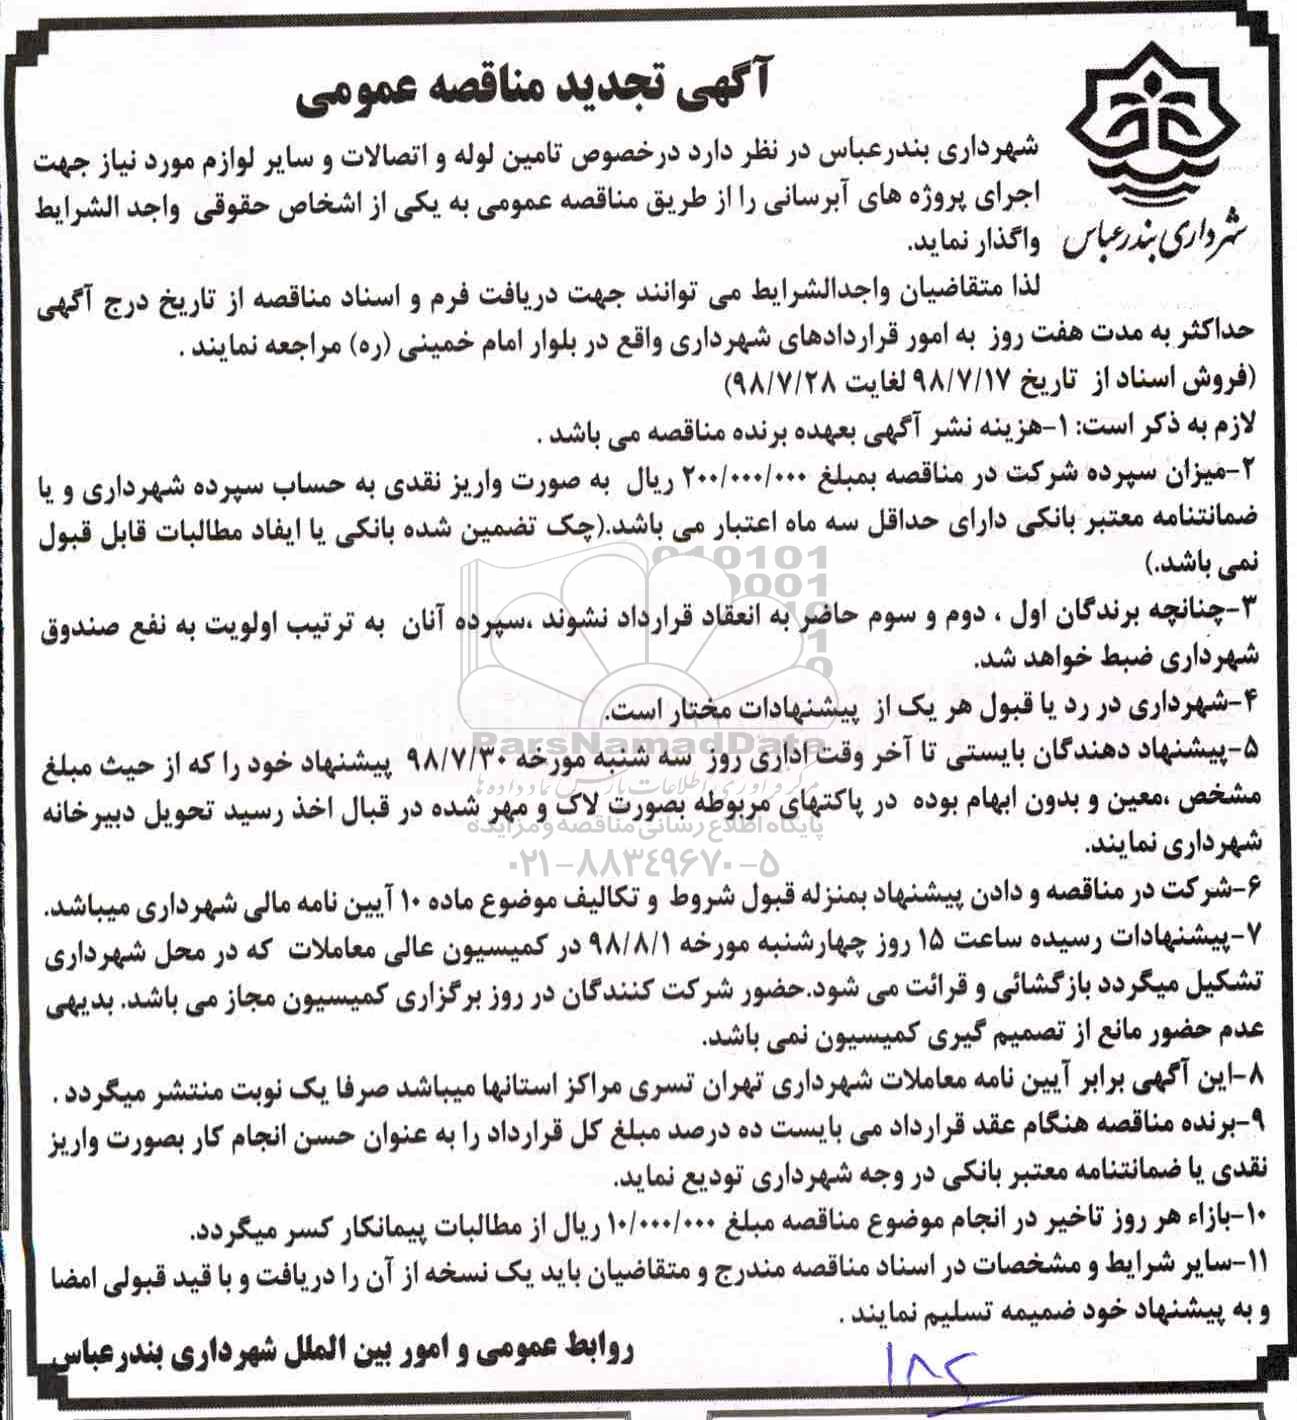 آگهی تجدید مناقصه عمومی
شهرداری بندرعباس
شهرداری بندرعباس در نظر دارد درخصوص تامین لوله و اتصالات و سایر لوازم مورد نیاز جهت
اجرای پروژه های آبرسانی را از طریق مناقصه عمومی به یکی از اشخاص حقوقی واجد الشرایط
واگذار نماید.
لذا متقاضیان واجدالشرایط می توانند جهت دریافت فرم و اسناد مناقصه از تاریخ درج آگهی
حداکثر به مدت هفت روز به امور قراردادهای شهرداری واقع در بلوار امام خمینی (ره) مراجعه نمایند .
(فروش اسناد از تاریخ ۹۸/۷/۱۷ لغایت ۹۸/۷/۲۸)
لازم به ذکر است: ۱-هزینه نشر آگهی بعهده برنده مناقصه می باشد .
۲-میزان سپرده شرکت در مناقصه بمبلغ ۲۰۰/۰۰۰/۰۰۰ ریال به صورت واریز نقدی به حساب سپرده شهرداری و یا
ضمانتنامه معتبر بانکی دارای حداقل سه ماه اعتبار می باشد.(چک تضمین شده بانکی یا ایفاد مطالبات قابل قبول
نمی باشد.)
۳-چنانچه برندگان اول ، دوم و سوم حاضر به انعقاد قرارداد نشوند ،سپرده آنان به ترتیب اولویت به نفع صندوق
شهرداری ضبط خواهد شد.
۴-شهرداری در رد یا قبول هر یک از پیشنهادات مختار است.
ParsNamadData
۵-پیشنهاد دهندگان بایستی تا آخر وقت اداری روز سه شنبه مورخه ۹۸/۷/۳۰ پیشنهاد خود را که از حیث مبلغ
مشخص ،معین و بدون ابهام بوده در پاکتهای مربوطه بصورت لاک و مهر شده در قبال اخذ رسید تحویل دبیرخانه
پایگاه اطلاع رسانی مناقصه و مزایده
شهرداری نمایند.
۰۲۱-۸۸۳۴۹۶۷۰-۵
۶-شرکت در مناقصه و دادن پیشنهاد بمنزله قبول شروط و تکالیف موضوع ماده ۱۰ آیین نامه مالی شهرداری میباشد.
۷-پیشنهادات رسیده ساعت ۱۵ روز چهارشنبه مورخه ۹۸/۸/۱ در کمیسیون عالی معاملات که در محل شهرداری
تشکیل میگردد بازگشائی و قرائت می شود.حضور شرکت کنندگان در روز برگزاری کمیسیون مجاز می باشد. بدیهی
عدم حضور مانع از تصمیم گیری کمیسیون نمی باشد.
۸-این آگهی برابر آیین نامه معاملات شهرداری تهران تسری مراکز استانها میباشد صرفا یک نوبت منتشر میگردد .
۹-برنده مناقصه هنگام عقد قرارداد می بایست ده درصد مبلغ کل قرارداد را به عنوان حسن انجام کار بصورت واریز
نقدی یا ضمانتنامه معتبر بانکی در وجه شهرداری تودیع نماید.
۱۰-بازاء هر روز تاخیر در انجام موضوع مناقصه مبلغ ۱۰/۰۰۰/۰۰۰ ریال از مطالبات پیمانکار کسر میگردد.
۱۱-سایر شرایط و مشخصات در اسناد مناقصه مندرج و متقاضیان باید یک نسخه از آن را دریافت و با قید قبولی امضا
و به پیشنهاد خود ضمیمه تسلیم نمایند .
روابط عمومی و امور بین الملل شهرداری بندرعباس